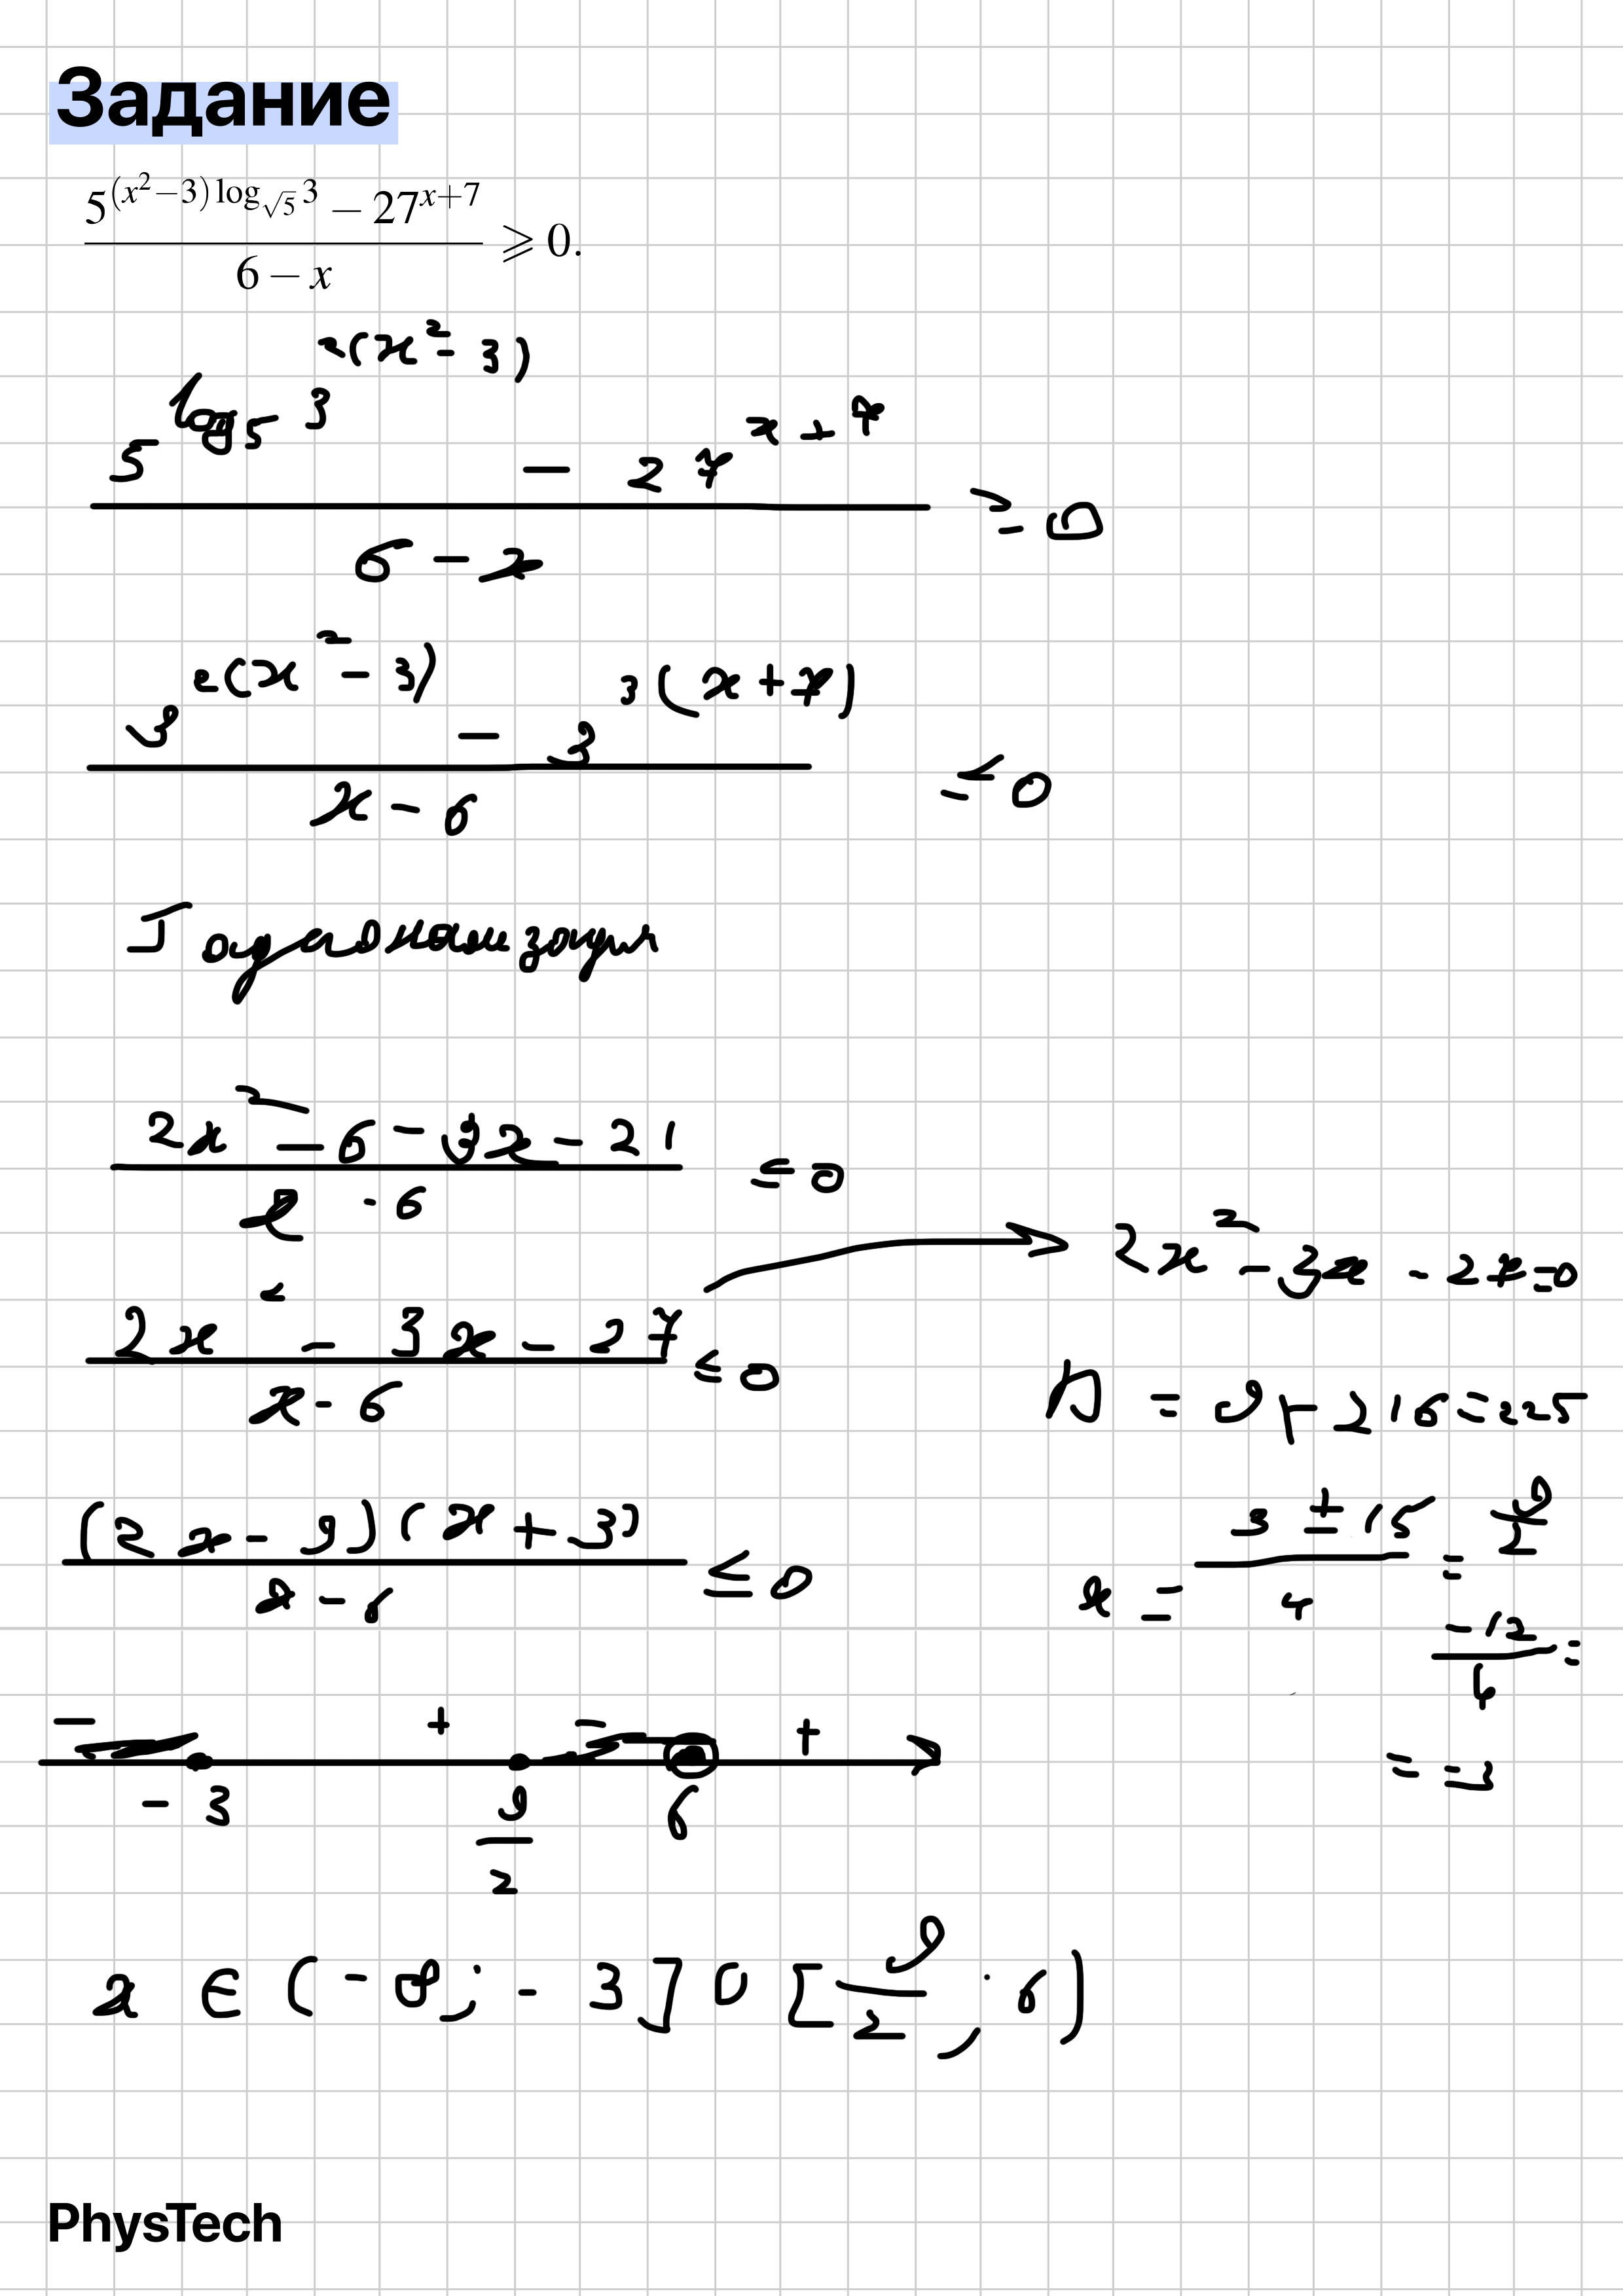 Задание
5^((x²−3) log_√5 3) − 27^(x+7)
6 − x
⩾ 0.
5^(log_5 3^(2(x²−3))) − 27^(x+7)
6 − x
≥ 0
3^(2(x²−3)) − 3^(3(x+7))
x − 6
≤ 0
2x² − 6 − 3x − 21
x − 6
≤ 0
2x² − 3x − 27
x − 6
≤ 0
2x² − 3x − 27 = 0
D = 9 + 216 = 225
x = (3 ± 15)/4 = 9/2
−12/4 =
= −3
(2x − 9)(x + 3)
x − 6
≤ 0
− + − +
−3 9/2 6
x ∈ (−∞; −3] ∪ [9/2; 6)
PhysTech